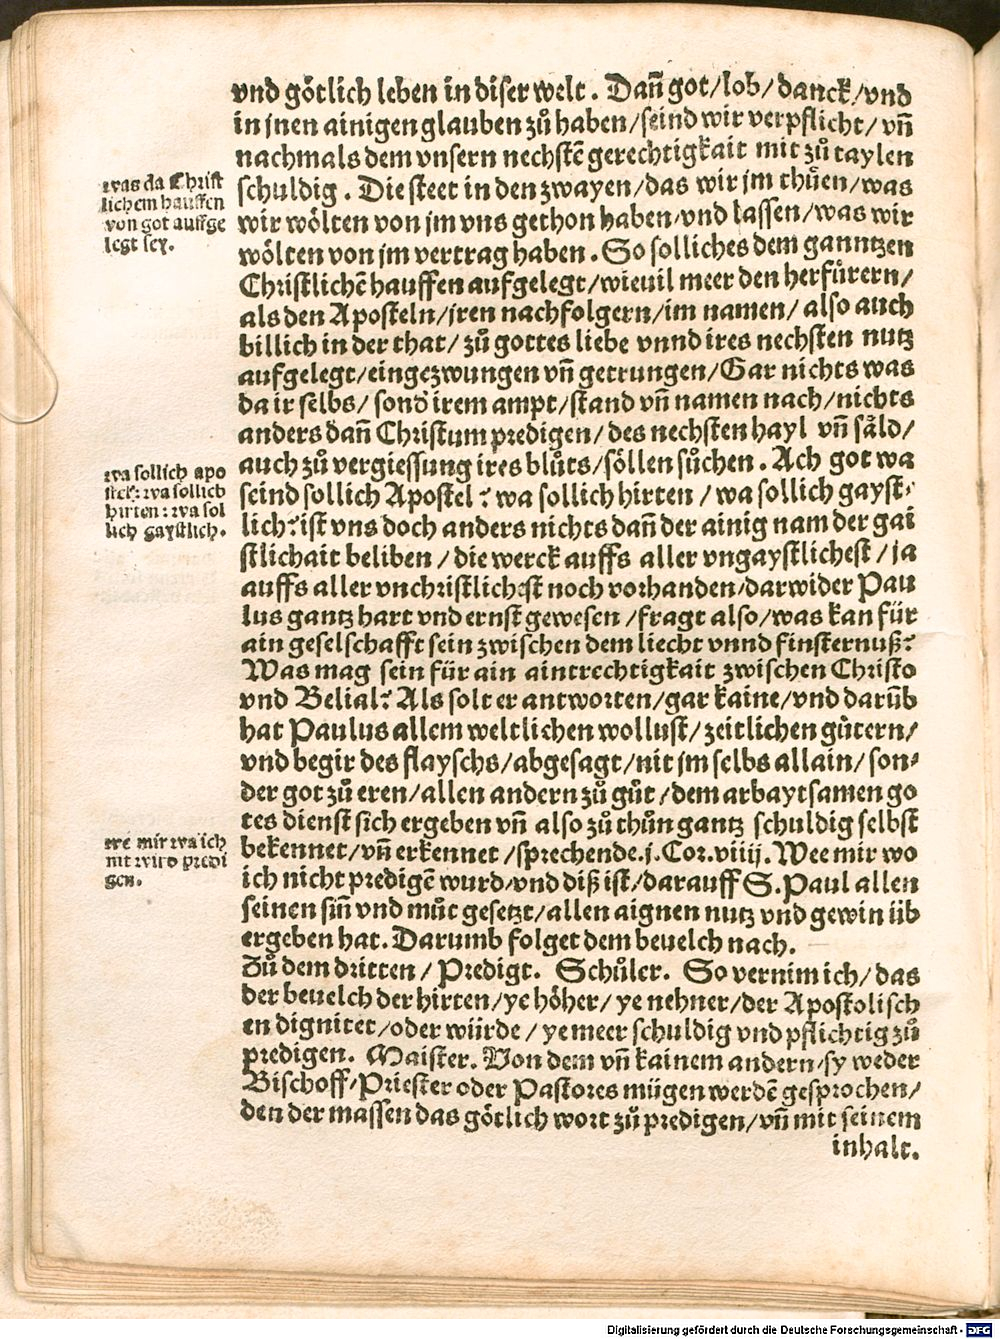 vnd götlich leben in diser welt. Dañ got/lob/danck/vnd
in jnen ainigen glauben zů haben/seind wir verpflicht/vñ
nachmals dem vnsern nechstē gerechtigkait mit zů taylen
schuldig. Die steet in den zwayen/das wir jm thüen/was
wir wölten von jm vns gethon haben/vnd lassen/was wir
wölten von jm vertrag haben. So solliches dem ganntzen
Christlichē hauffen aufgelegt/wieuil meer den herfürern/
als den Aposteln/jren nachfolgern/im namen/also auch
billich in der that/zů gottes liebe vnnd ires nechsten nutz
aufgelegt/eingezwungen vñ getrungen/Gar nichts was
da ir selbs/sonď irem ampt/stand vñ namen nach/nichts
anders dañ Christum predigen/des nechsten hayl vñ säld/
auch zů vergiessung ires blůts/söllen sůchen. Ach got wa
seind sollich Apostel? wa sollich hirten/wa sollich gayst⸗
lich? ist vns doch anders nichts dañ der ainig nam der gai
stlichait beliben/die werck auffs aller vngaystlichest/ja
auffs aller vnchristlichest noch vorhanden/darwider Pau
lus gantz hart vnd ernst gewesen/fragt also/was kan für
ain geselschafft sein zwischen dem liecht vnnd finsternuß?
Was mag sein für ain aintrechtigkait zwischen Christo
vnd Belial? Als solt er antworten/gar kaine/vnd darüb
hat Paulus allem weltlichen wollust/zeitlichen gůtern/
vnd begir des flayschs/abgesagt/nit jm selbs allain/son⸗
der got zů eren/allen andern zů gůt/dem arbaytsamen go
tes dienst sich ergeben vñ also zů thůn gantz schuldig selbst
bekennet/vñ erkennet/sprechende.j.Cor.viiij. Wee mir wo
ich nicht predigē wurd/vnd diß ist/darauff S. Paul allen
seinen siñ vnd můt gesetzt/allen aignen nutz vnd gewin üb
ergeben hat. Darumb folget dem beuelch nach.
Zů dem dritten/Predigt. Schůler. So vernim ich/das
der beuelch der hirten/ye höher/ye nehner/der Apostolisch
en dignitet/oder würde/ye meer schuldig vnd pflichtig zů
predigen. Maister. Von dem vñ kainem andern/sy weder
Bischoff/Priester oder Pastores mügen werdē gesprochen/
den der massen das götlich wort zů predigen/vñ mit seinem
inhalt.
was da Christ
lichem hauffen
von got auffge
legt sey.
wa sollich apo
stel: wa sollich
hirten: wa sol
lich gaystlich.
we mir wa ich
nit wird predi
gen.
Digitalisierung gefördert durch die Deutsche Forschungsgemeinschaft - DFG